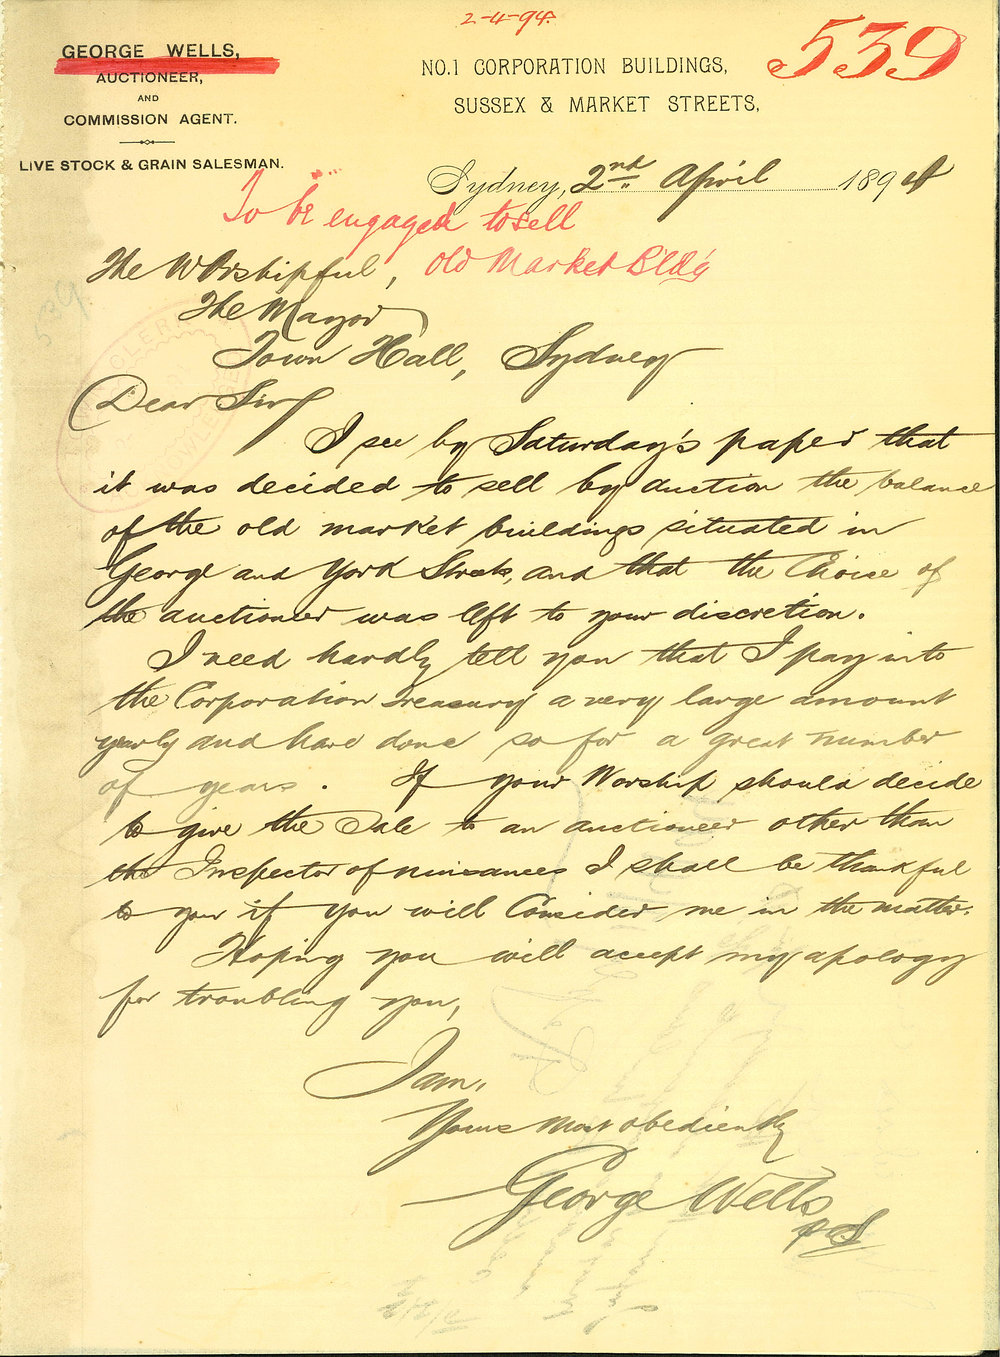 2-4-94.
539
GEORGE WELLS,
AUCTIONEER,
AND
COMMISSION AGENT.
LIVE STOCK & GRAIN SALESMAN.
NO.1 CORPORATION BUILDINGS,
SUSSEX & MARKET STREETS,
Sydney, 2nd April 1894
To be engaged to sell
old Market Bldg
The Worshipful,
The Mayor
Town Hall, Sydney
Dear Sir
I see by Saturday's paper that
it was decided to sell by auction the balance
of the old market buildings situated in
George and York Streets, and that the Choice of
the auctioneer was left to your discretion.
I need hardly tell you that I pay into
the Corporation treasury a very large amount
yearly and have done so for a great number
of years. If your Worship should decide
to give the Sale to an auctioneer other than
the Inspector of nuisances I shall be thankful
to you if you will Consider me in the matter.
Hoping you will accept my apology
for troubling you,
I am,
Yours most obediently
George Wells
539